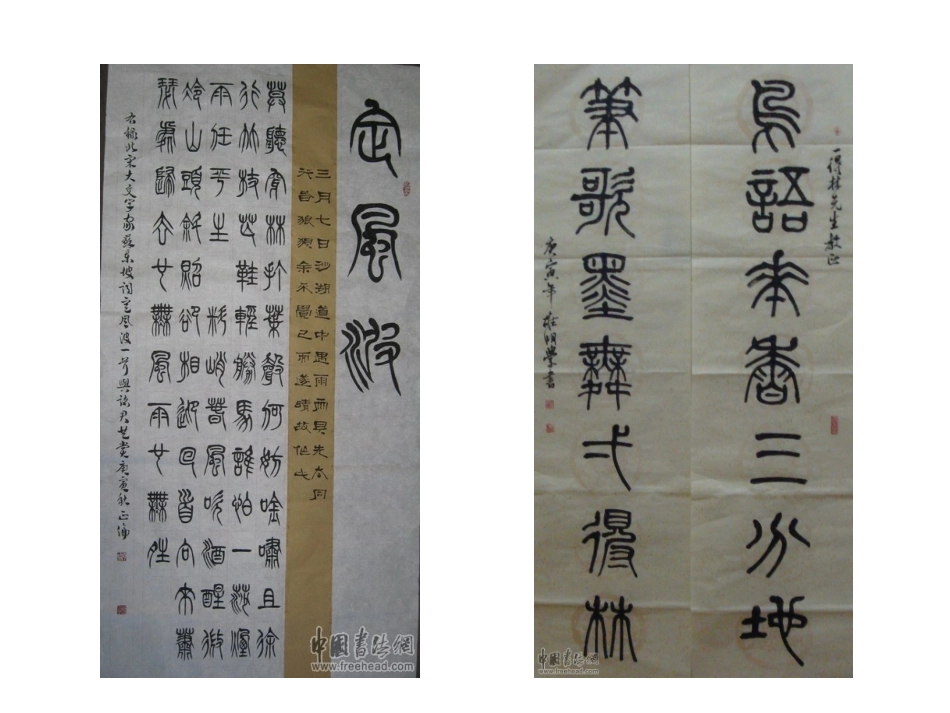 定風波
三月七日沙湖道中遇雨雨具先去同
行皆狼狽余不覺已而遂晴故作此
莫聽穿林打葉聲何妨吟嘯且徐
行竹杖芒鞋輕勝馬誰怕一蓑煙
雨任平生 料峭春風吹酒醒微
冷山頭斜照卻相迎回首向來蕭
瑟處歸去也無風雨也無晴
右錄北宋大文學家蘇東坡詞定風波一首與諸君共賞庚寅秋正倫
中國書法網
www.freehead.com
一得林先生教正
鳥語華香三分地
筆歌墨舞弌得林
庚寅年莊明學書
中國書法網
www.freehead.com